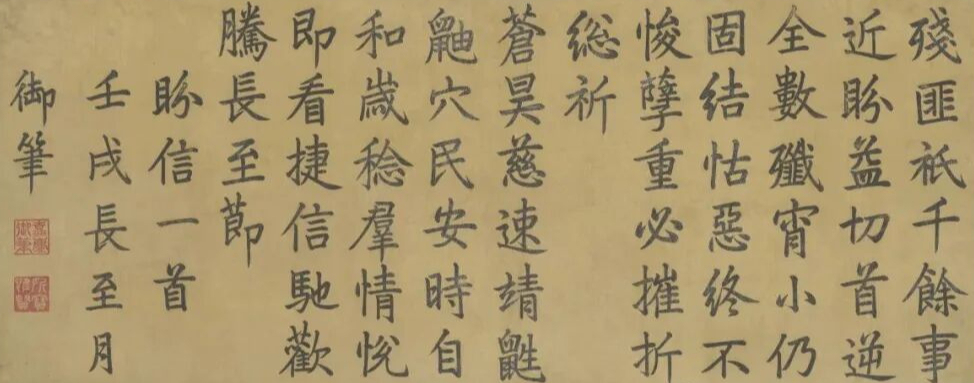 殘匪祇千餘事
近盻益切首逆
全數殲宵小仍
固結怙惡終不
悛孽重必摧折
総祈
蒼昊慈速靖鼪
鼬穴民安時自
和歲稔羣情悅
即看捷信馳歡
騰長至節
盻信一首
壬戌長至月
御筆